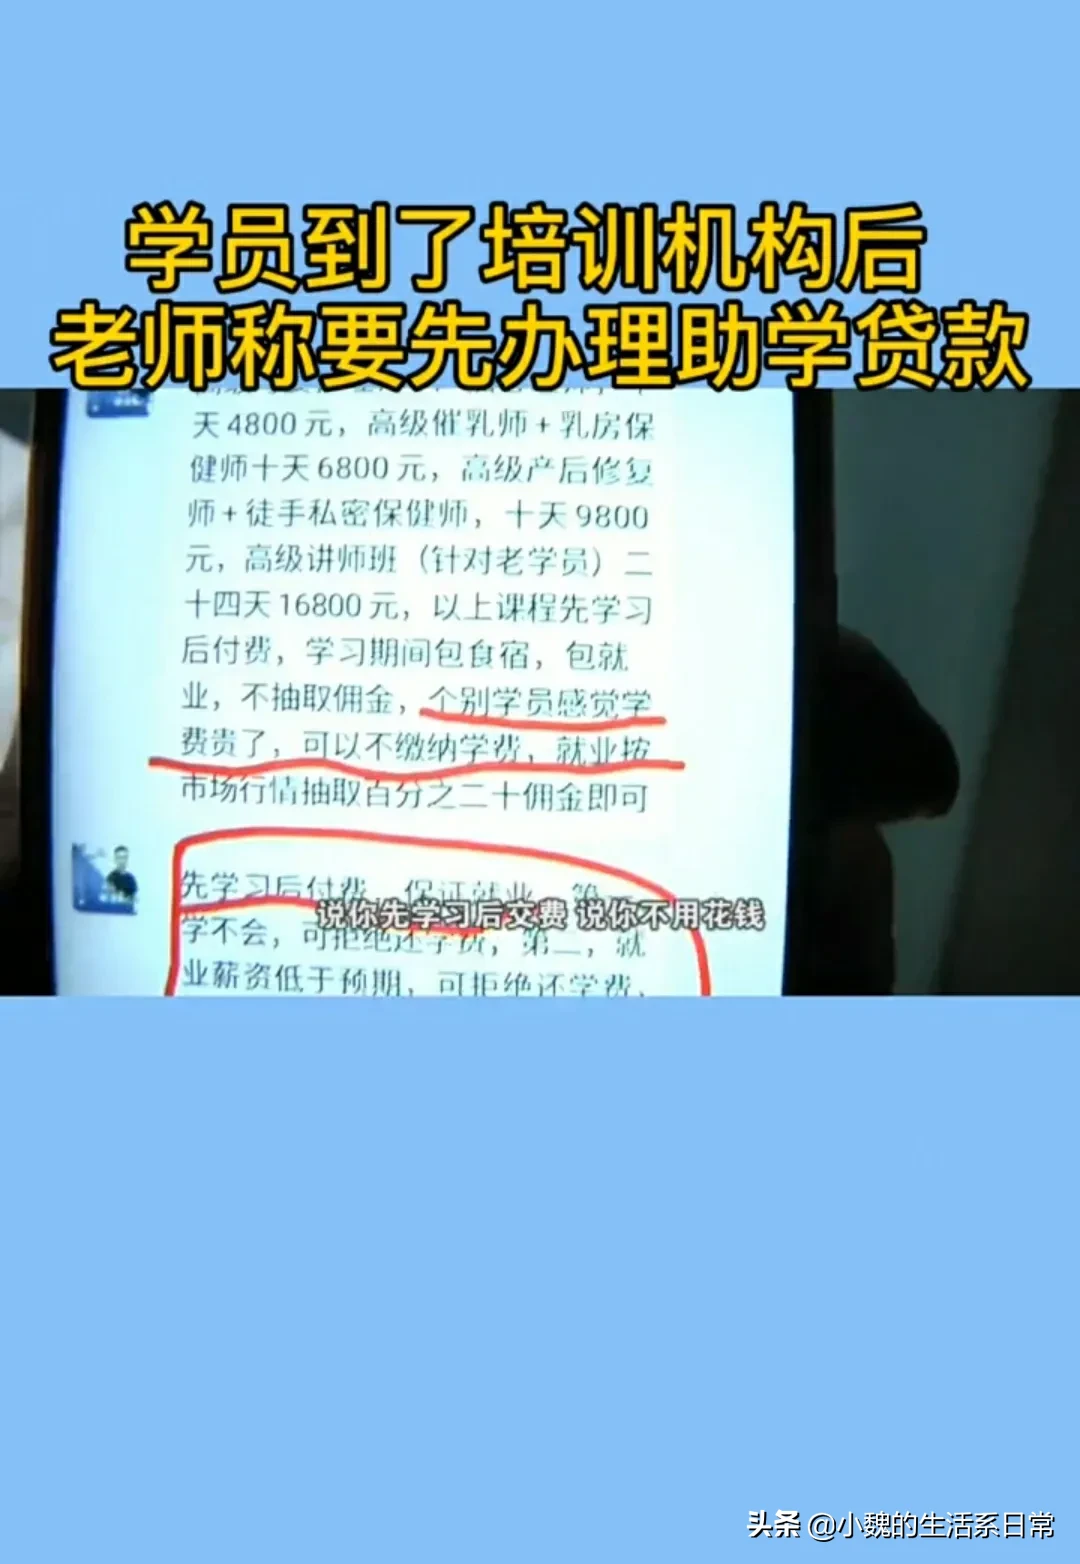 学员到了培训机构后
老师称要先办理助学贷款
天4800元，高级催乳师+乳房保
健师十天6800元，高级产后修复
师+徒手私密保健师，十天9800
元，高级讲师班（针对老学员）二
十四天16800元，以上课程先学习
后付费，学习期间包食宿，包就
业，不抽取佣金，个别学员感觉学
费贵了，可以不缴纳学费，就业按
市场行情抽取百分之二十佣金即可
先学习后付费，保证就业，第
说你先学习后交费 说你不用花钱
学不会，可拒绝还学费，第二，就
业薪资低于预期，可拒绝还学费，
头条 @小魏的生活系日常